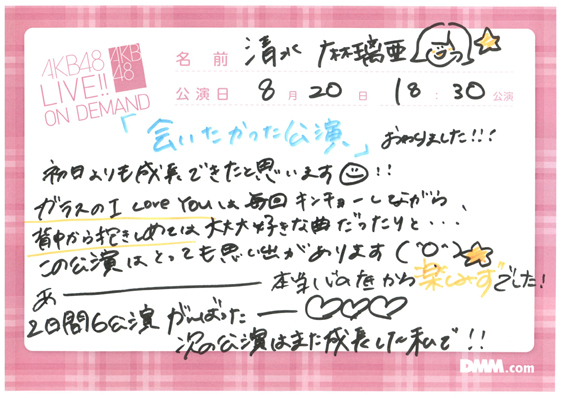 AKB48
LIVE!!
ON DEMAND
AKB
48
名前 清水 麻璃亜
公演日 8月20日 18:30公演
「会いたかった公演」おわりました!!!
初日よりも成長できたと思います!!
ガラスのI Love Youは毎回キンチョーしながら、
背中から抱きしめては大大大好きな曲だったりと・・・
この公演はとっても思い出があります(^O^)
本当に心の底から楽しみずでした!
あ
2日間6公演がんばった ♡♡♡
次の公演はまた成長した私で!!
DMM.com